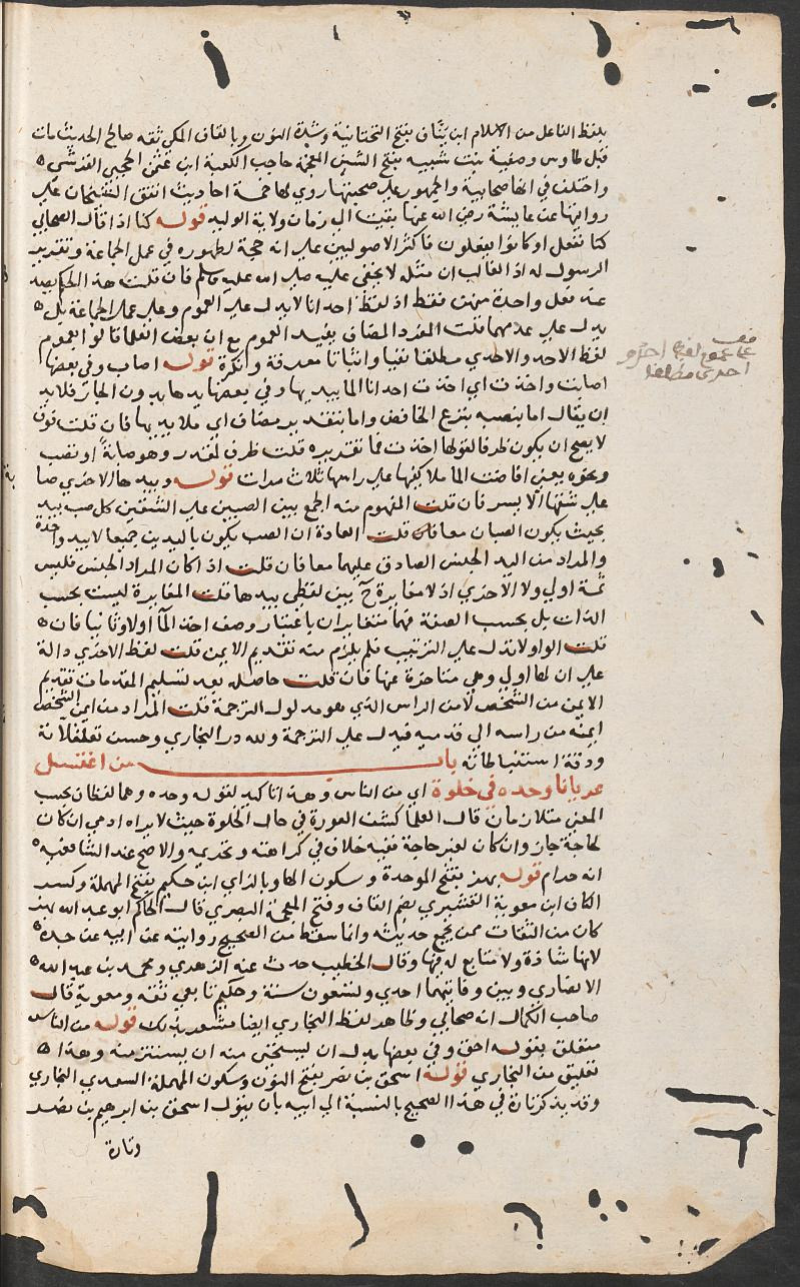 بلفظ الفاعل من الاسلام ابن يناق بفتح التحتانية وشدة النون وبالقاف المكي ثقه صالح الحديث مات
قبل طاوس وصفية بنت شيبه بفتح الشين المعجمة حاجب الكعبة ابن عثمن الحجبي القرشي
واختلف في انها صحابية والجمهور على صحبتها روي لها خمسة احاديث اتفق الشيخان على
روايتها عن عايشة رضي الله عنها بقيت الى زمان ولاية الوليد قوله كنا اذا قال الصحابي
كنا نفعل او كانوا يفعلون فاكثر الاصوليين على انه حجة لظهوره في عمل الجماعة وتقرير
الرسول له اذ الغالب ان مثله لا يخفى عليه صلى الله عليه وسلم فان قلت هذا الحكم بصد
عنه فعل واحدة منهن فقط اذ لفظ احدانا لا يدل على العموم وعلى عمل الجماعة بل
يدل على عدمهما قلت المفرد المضاف يفيد العموم مع ان بعض العلما قالوا بعموم
لفظ الاحد والاحدي مطلقا نفيا واثباتا معرفة ونكرة قوله اصاب وفي بعضها
اصابت واخذت اي اخذت احدانا الما بيديها وفي بعضها يدها بدون الجار فلابد
ان يقال اما بنصبه بنزع الخافض واما بتقدير مضاف اي ملا يديها فان قلت فوق
لا يصح ان يكون ظرفا لقولها اخذت فما تقديره قلت ظرف لمقدر وهو صابة او نصب
ونحوه يعني افاضت الما ملا كفها على راسها ثلاث مرات قوله وبيدها الاخري صا
على شقها الايسر فان قلت المفهوم منه الجمع بين الصبين على الشقين كل صب بيد
بحيث يكون الصبان معا فان قلت العادة ان الصب يكون باليدين جميعا لا بيد واحدة
والمراد من اليد الجنس الصادق عليهما معا فان قلت اذا كان المراد الجنس فليس
ثمة اولي ولا الاخري اذ لا مغايرة ح بين لفظي بيدها قلت المغايرة ليست بحسب
الذات بل بحسب الصفة فهما متغايران باعتبار وصف اخذ الما اولا وثانيا فان
قلت الواو لا تدل على الترتيب فلم يلزم منه تقديم الايمن قلت لفظ الاخري دالة
على ان لها اولي وهي متاخرة عنها فان قلت حاصله بعد تسليم المقدمات تقديم
الايمن من الشخص لا من الراس الذي هو مدلول الترجمة قلت المراد من ايمن الشخص
ايمنه من راسه الى قدميه فيدل على الترجمة ولله در البخاري وحسن تعقلاته
ودقة استنباطاته باب من اغتسل
عريانا وحده في خلوة اي من الناس وهذا تاكيد لقوله وحده وهما لفظان بحسب
المعني متلازمان قال العلما كشف العورة في حال الخلوة حيث لا يراه ادمي ان كان
لحاجة جاز وان كان لغير حاجة ففيه خلاف في كراهته وتحريمه والاصح عند الشافعيه
انه حرام قوله بهز بفتح الموحدة وسكون الها وبالزاي ابن حكيم بفتح المهملة وكسر
الكاف ابن معوية القشيري بضم القاف وفتح المعجمة البصري قال الحاكم ابو عبد الله بهز
كان من الثقات ممن يجمع حديثه وانما سقط من الصحيح روايته عن ابيه عن جده
لانها شاذة ولا متابع له فيها وقال الخطيب حدث عنه الزهري ومحمد بن عبد الله
الانصاري وبين وفاتيهما احدي وتسعون سنة وحكيم تابعي ثقة ومعوية قال
صاحب الكمال انه صحابي وظاهر لفظ البخاري ايضا مشعر بذلك قوله من الناس
متعلق بقوله احق وفي بعضها بدل ان يستحيي منه ان يستتر منه وهذا
تعليق من البخاري قوله اسحق بن نصر بفتح النون وسكون المهملة السعدي البخاري
وقد يذكر تارة في هذا الصحيح بالنسبة الى ابيه بان يقول اسحق بن ابرهيم بن نصر
وتارة
قف
على عموم لفظ احد و
احدي مطلقا